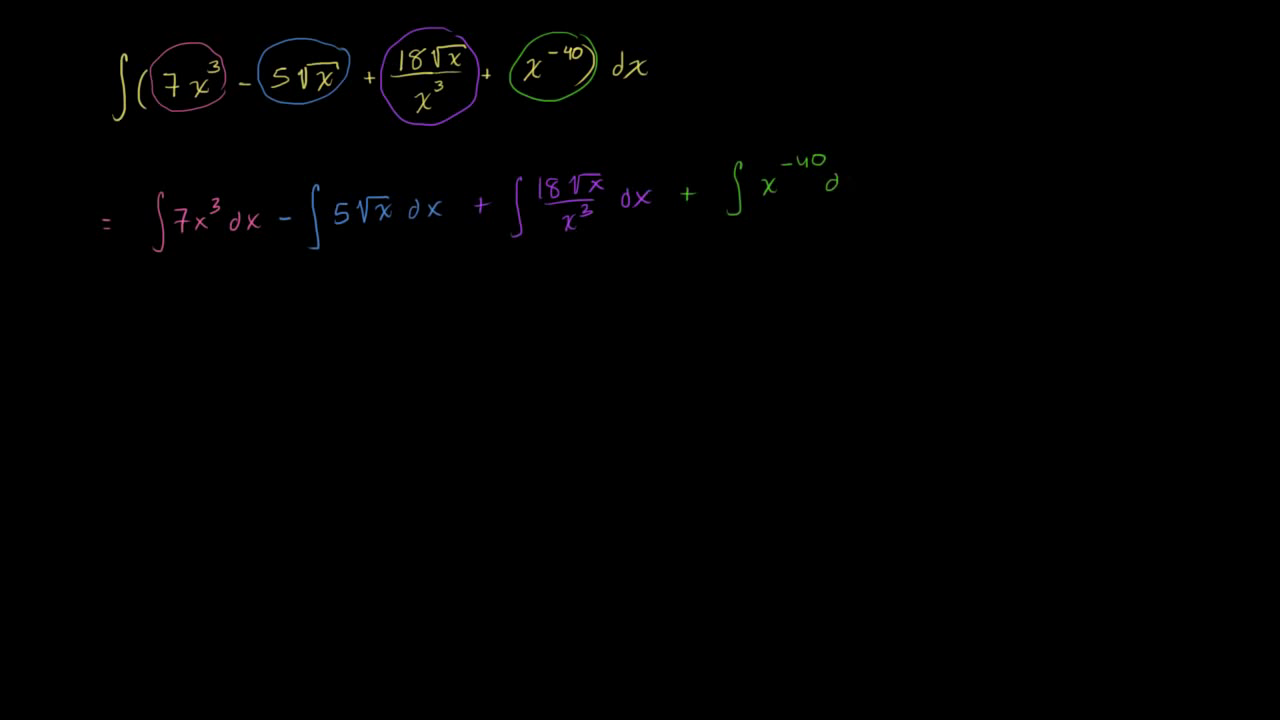 ∫(7x³ - 5√x + 18√x/x³ + x⁻⁴⁰) dx
= ∫7x³ dx - ∫5√x dx + ∫18√x/x³ dx + ∫x⁻⁴⁰ d